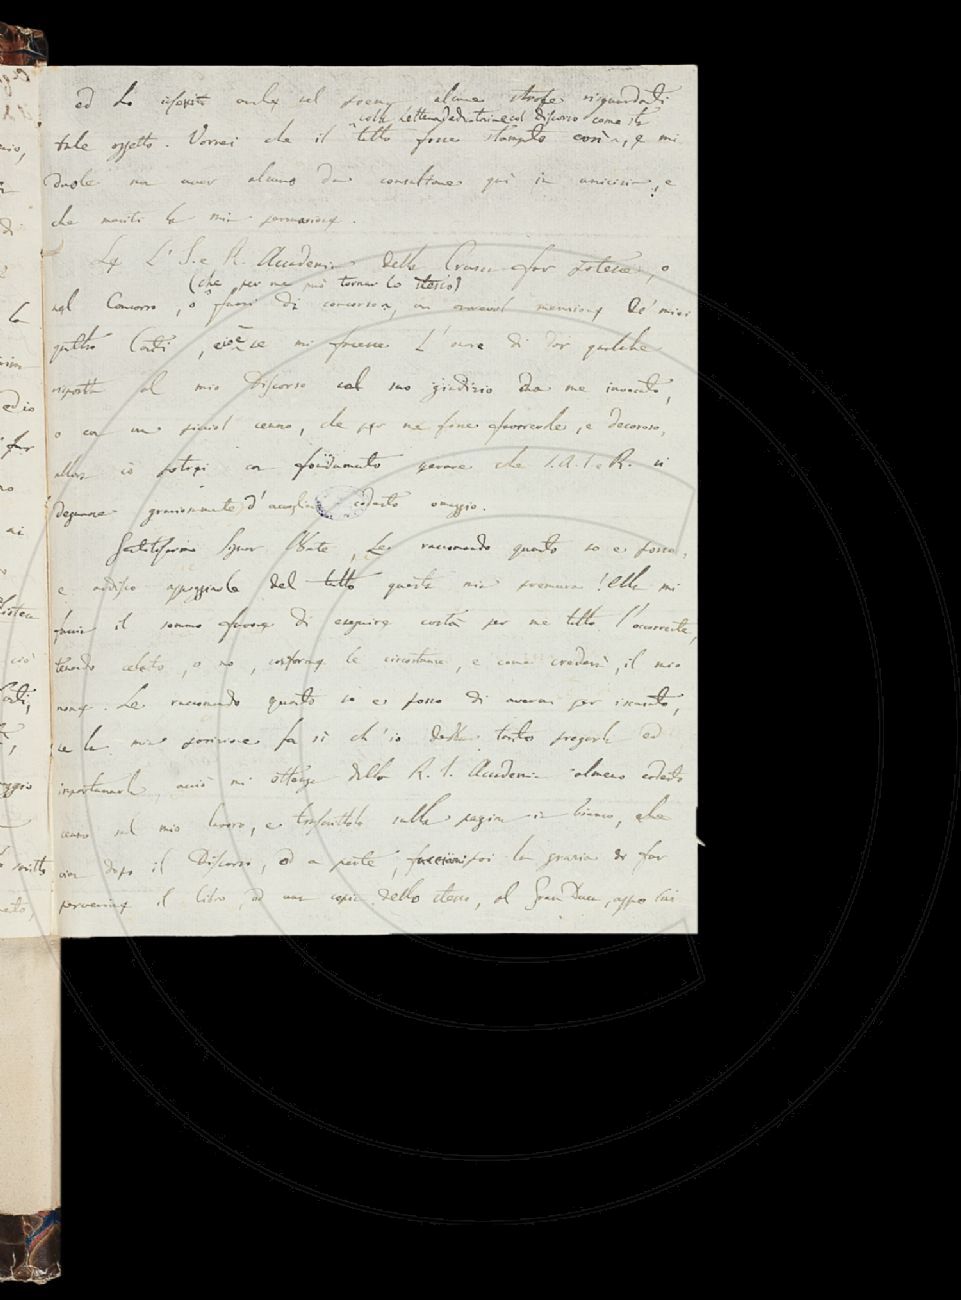 ed ho inserite anche nel poema alcune strofe riguardanti
colla Lettera Dedicatoria e col discorso come sta
tale oggetto. Vorrei che il tutto fosse stampato così, e mi
duole non aver alcuno da consultare quì in amicizia, e
che meriti la mia
Se L' I. e R. Accademia della Crusca potesse, o
(che per me può tornar lo stesso)
nel Concorso, o fuori di concorso, menzione de' miei
quattro Canti, cioè se mi facesse L' onore di dar qualche
risposta al mio Discorso col suo giudizio da me invocato,
o con un piccol cenno, che per me fosse favorevole, e decoroso,
allora io potrei con fondamento sperare che S. A. I. e R. si
degnasse graziosamente d' accogliere codesto omaggio.
Gentilissimo Signor Abate, Le raccomando quanto so e posso,
e ardisco appoggiarle del tutto questa mia premura! Ella mi
faccia il sommo favore di eseguire costà per me tutto l'occorrente,
tenendo celato, o no, conforme le circostanze, e come crederà, il mio
nome. Le raccomando quanto so e posso di avermi per iscusato,
se la mia posizione fa sì ch' io debba tanto pregarla ed
importunarla, acciò mi ottenga dalla R. I. Accademia almeno codesto
cenno sul mio lavoro, e trascrittolo sulla pagina in bianco, che
vien dopo il Discorso, od a parte, facciami poi la grazia di far
pervenire il libro, od una copia dello stesso, al Gran Duca, appo lui